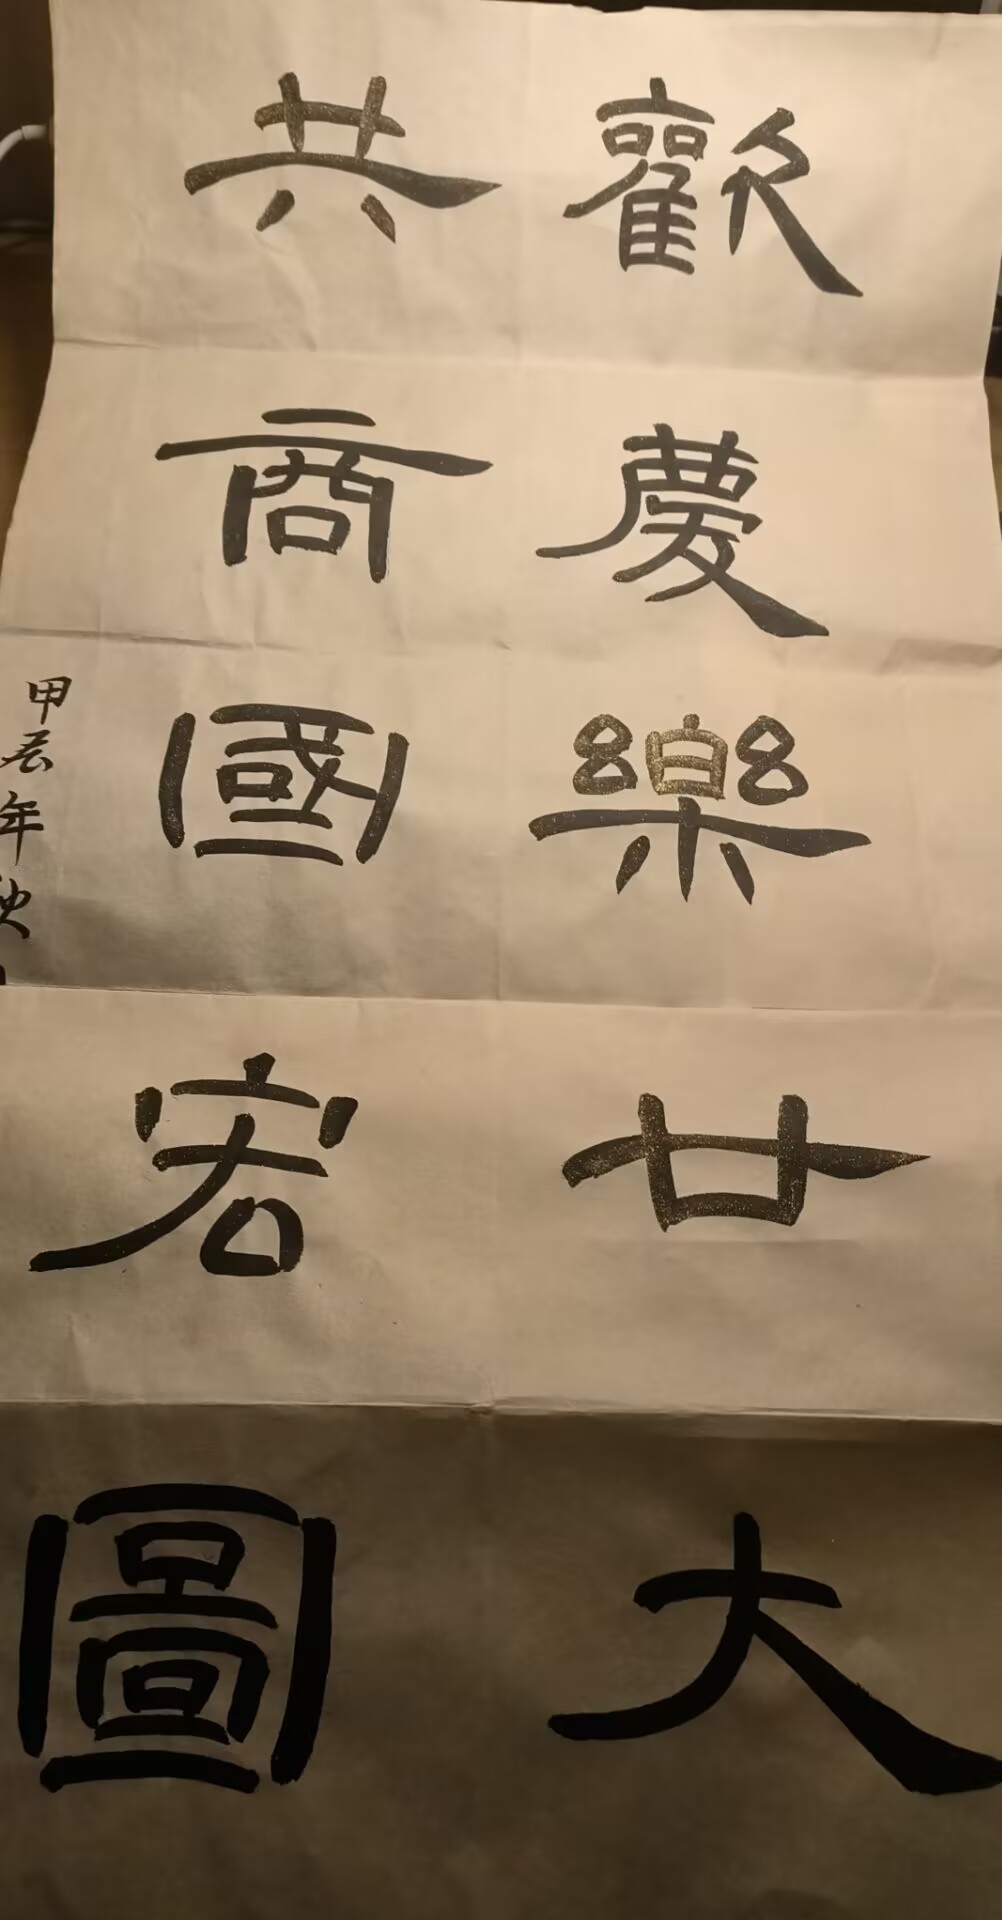 歡慶樂廿大
共商國宏圖
甲辰年秋